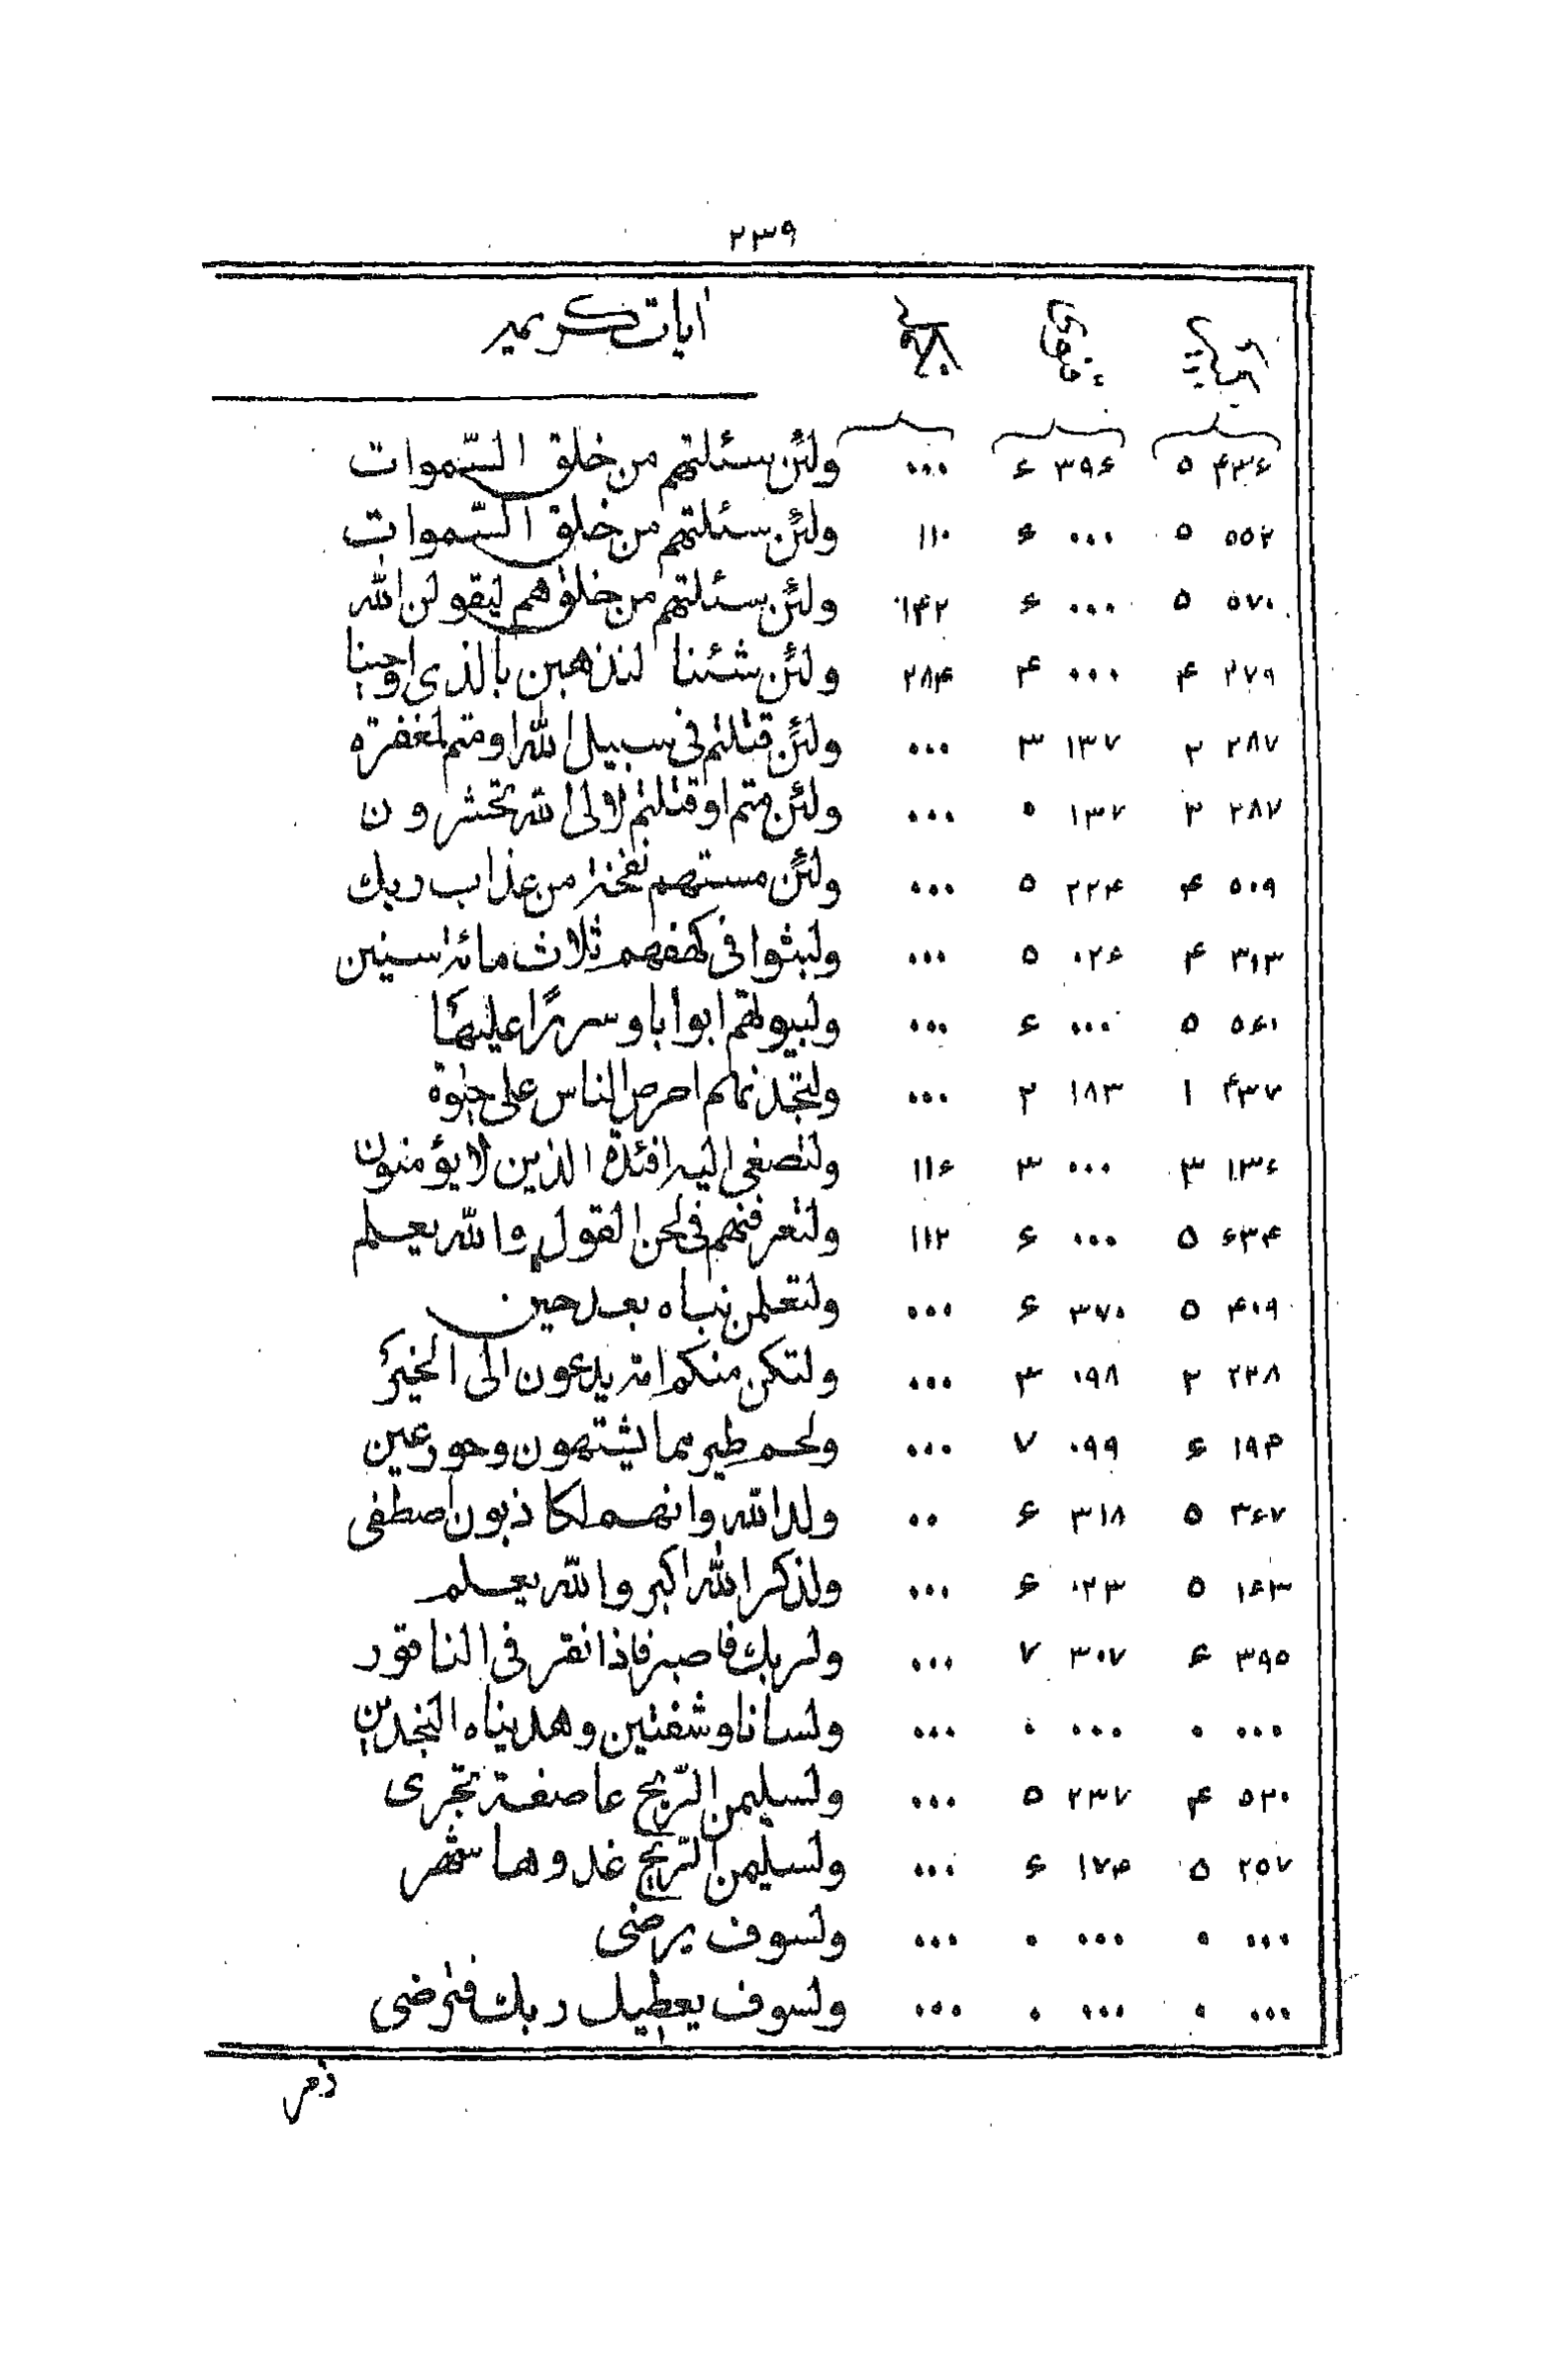 ٢٣٩
ايات كريمه
۴۳۶ ۵ ۳۹۶ ۶ ۰۰۰ ولئن سئلتهم من خلق السّموات
۵۵۲ ۵ ۰۰۰ ۶ ۱۱۰ ولئن سئلتهم من خلق السّموات
۵۷۰ ۵ ۰۰۰ ۶ ۱۴۲ ولئن سئلتهم من خلقهم ليقولن الله
۲۷۹ ۴ ۰۰۰ ۴ ۲۸۴ ولئن شئنا لنذهبن بالذى اوحينا
۲۸۷ ۲ ۱۳۷ ۳ ۰۰۰ ولئن قتلتم فى سبيل الله او متم لمغفرة
۲۸۷ ۲ ۱۳۷ ۰ ۰۰۰ ولئن متم او قتلتم لالى الله تحشرون
۵۰۹ ۴ ۲۲۴ ۵ ۰۰۰ ولئن مستهم نفحة من عذاب ربك
۳۱۳ ۴ ۰۲۶ ۵ ۰۰۰ ولبثوا فى كهفهم ثلاث مائة سنين
۵۶۱ ۵ ۰۰۰ ۶ ۰۰۰ ولبيوتهم ابوابا وسررًا عليها
۴۳۷ ۱ ۱۸۳ ۲ ۰۰۰ ولتجدنهم احرص الناس على حيوة
۱۳۶ ۳ ۰۰۰ ۳ ۱۱۶ ولتصغى اليه افئدة الذين لا يؤمنون
۶۳۴ ۵ ۰۰۰ ۶ ۱۱۲ ولتعرفنهم فى لحن القول والله يعلم
۴۰۹ ۵ ۳۷۰ ۶ ۰۰۰ ولتعلمن نباه بعد حين
۲۳۸ ۲ ۰۹۸ ۳ ۰۰۰ ولتكن منكم امة يدعون الى الخير
۱۹۴ ۶ ۰۹۹ ۷ ۰۰۰ ولحم طير مما يشتهون وحور عين
۳۶۷ ۵ ۳۱۸ ۶ ۰۰ ولد الله وانهم لكاذبون اصطفى
۱۶۳ ۵ ۰۲۳ ۶ ۰۰۰ ولذكر الله اكبر والله يعلم
۳۹۵ ۶ ۳۰۷ ۷ ۰۰۰ ولربك فاصبر فاذا نقر فى الناقور
۰۰۰ ۰ ۰۰۰ ۰ ۰۰۰ ولسانا وشفتين وهديناه النجدين
۵۲۰ ۴ ۲۳۷ ۵ ۰۰۰ ولسليمن الرّيح عاصفة تجرى
۲۵۷ ۵ ۱۷۴ ۶ ۰۰۰ ولسليمن الرّيح غدوها شهر
۰۰۰ ۰ ۰۰۰ ۰ ۰۰۰ ولسوف يرضى
۰۰۰ ۰ ۰۰۰ ۰ ۰۰۰ ولسوف يعطيك ربك فترضى